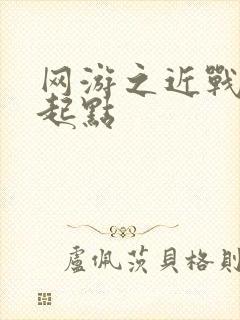 网游之近戰
起點
盧佩茨貝格則